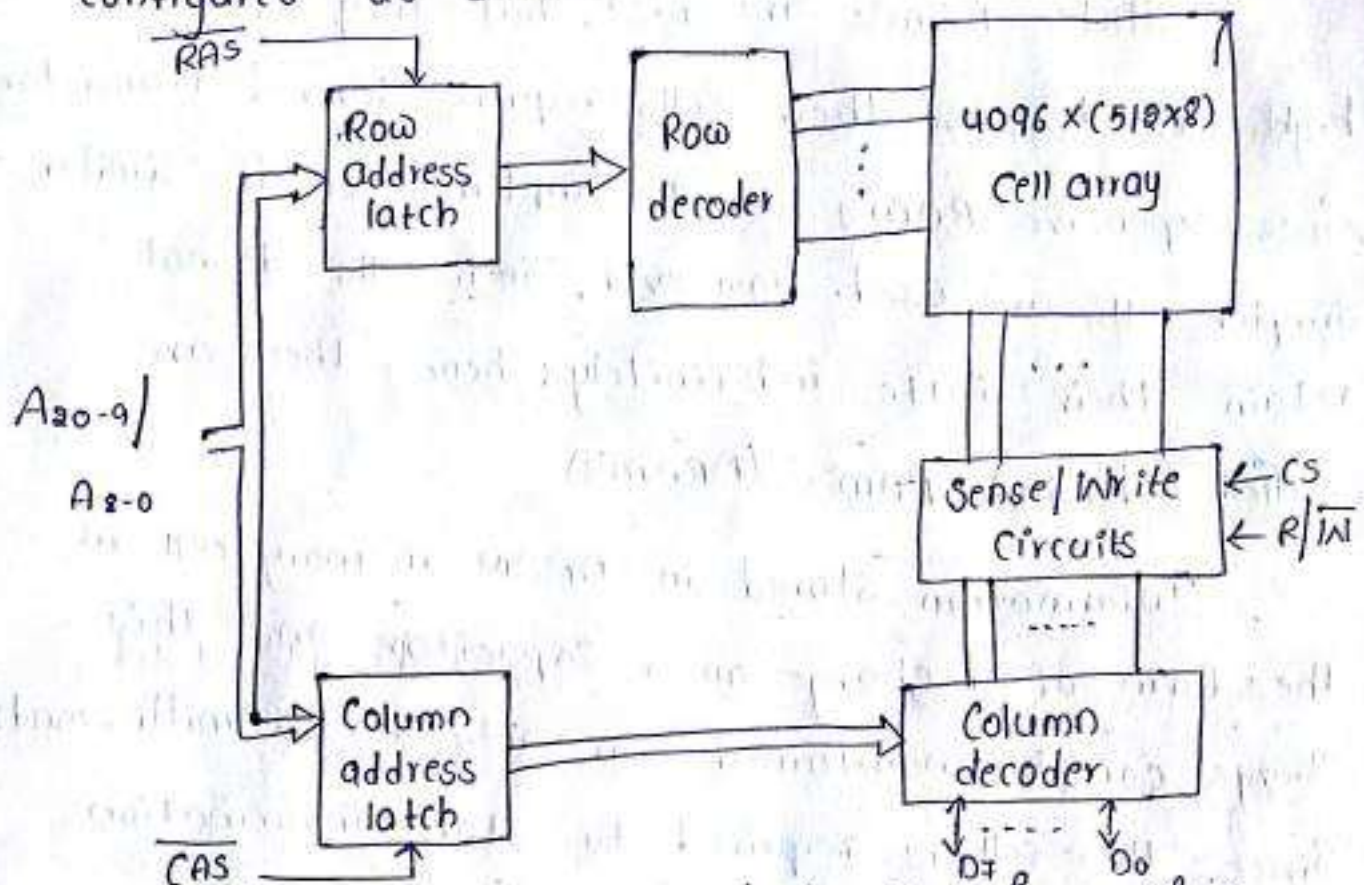 configured
RAS
Row
address
latch
Row
decoder
4096 x (512x8)
Cell array
A20-9/
A8-0
Sense/Write
Circuits
← CS
← R/W
Column
address
latch
Column
decoder
CAS
D7
D0